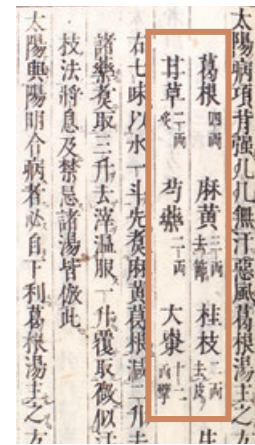 太陽病項背强几几無汗惡風葛根湯主之方
葛根四兩 麻黃三兩去節 桂枝二兩去皮 生
甘草二兩炙 芍藥二兩 大棗十二枚擘
右七味以水一斗先煮麻黃葛根减二升去
諸藥煮取三升去滓温服一升覆取微似汗
技法將息及禁忌諸湯皆倣此
太陽與陽明合病者必自下利葛根湯主之方